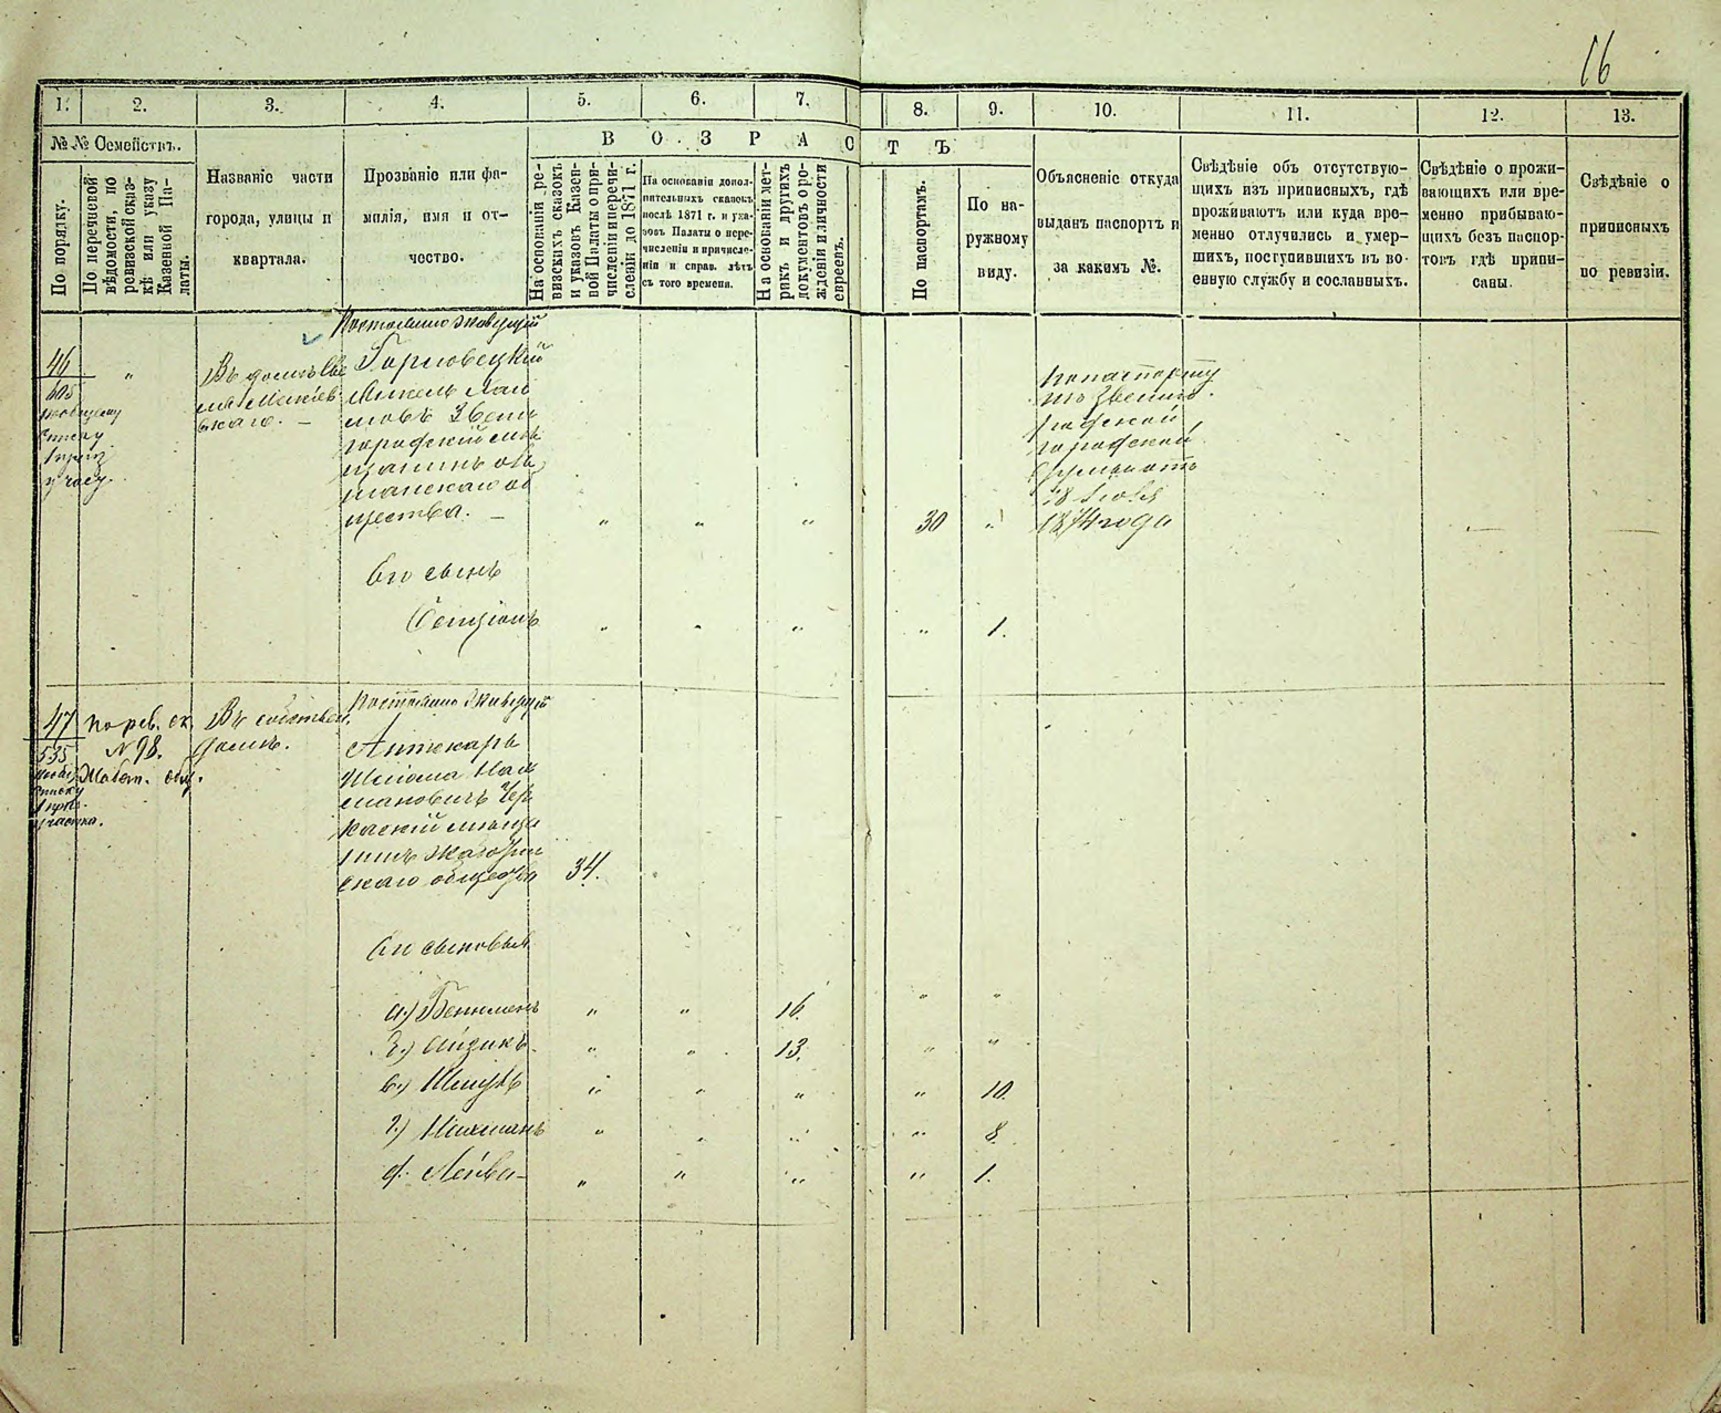 16
1. 2. 3. 4. 5. 6. 7. 8. 9. 10. 11. 12. 13.
№ № Семействъ.
По порядку.
По перечневой
вѣдомости, по
ревизской сказ-
кѣ или указу
Казенной Па-
латы.
Названіе части
города, улицы и
квартала.
Прозваніе или фа-
милія, имя и от-
чество.
ВОЗРАСТЪ
На основаніи ре-
визскихъ сказокъ
и указовъ Казен-
ной Палаты о при-
численіи и перечи-
сленіи до 1871 г.
На основаніи допол-
нительныхъ сказокъ
послѣ 1871 г. и ука-
зовъ Палаты о пере-
численіи и причисле-
ніи и справ. лѣтъ
съ того времени.
На основаніи мет-
рикъ и другихъ
документовъ о ро-
жденіи и личности
евреевъ.
По паспортамъ.
По на-
ружному
виду.
Объясненіе откуда
выданъ паспортъ и
за какимъ №.
Свѣдѣніе объ отсутствую-
щихъ изъ приписныхъ, гдѣ
проживаютъ или куда вре-
менно отлучились и умер-
шихъ, поступившихъ въ во-
енную службу и сосланныхъ.
Свѣдѣніе о прожи-
вающихъ или вре-
менно прибываю-
щихъ безъ паспор-
товъ гдѣ припи-
саны.
Свѣдѣніе о
приписныхъ
по ревизіи.
Постоянно живущій
46
605
по общему
списку
1 приз
участ.
"
Въ домѣ
скаго. —
Горловецкій
Мошковъ Звени
городскій мѣ
щанинъ оль
шанскаго об
щества. —
" " " 30 "
По паспорту
изъ Звениго
родской
городской
18 Іюля
1874 года
— —
Его сынъ
Бенціонъ " " " " 1.
Постоянно живущій
47
535
по общ.
списку
1 приз.
участка.
По рев. ск.
№ 98.
Жабот. общ.
Въ собствен.
домѣ.
Аптекарь
Шліома Нах
мановичъ Чер
каскій мѣща
нинъ Жаботин
скаго общества 34.
Его сыновья
а.) Беньменъ " " 16. " "
б.) Айзикъ " " 13. " "
в.) Шмуль " " " " 10.
г.) Нахманъ " " " " 8.
д. Лейба " " " " 1.